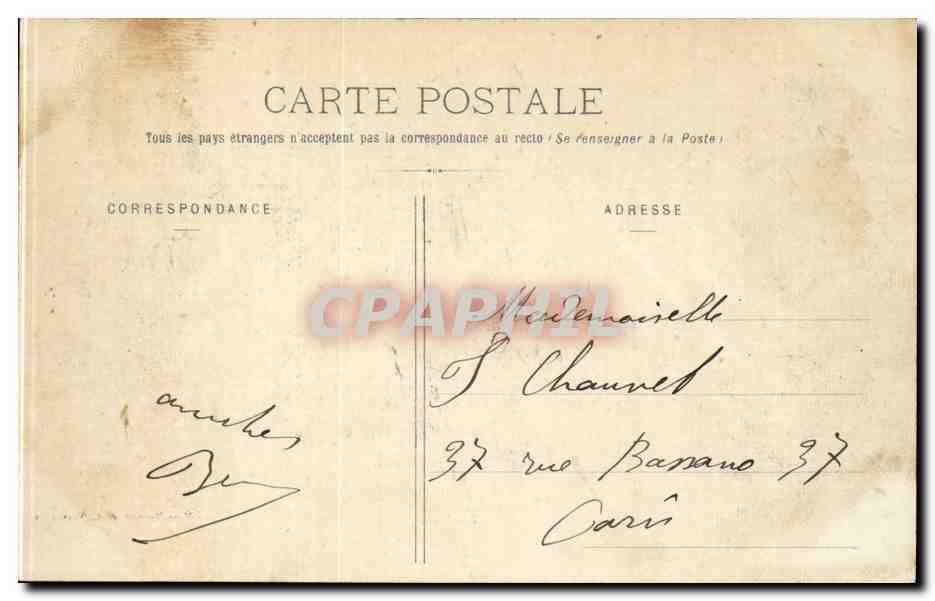 CARTE POSTALE
Tous les pays étrangers n'acceptent pas la correspondance au recto (Se renseigner à la Poste)
CORRESPONDANCE
ADRESSE
CPAPHIL
Mademoiselle
Chauvet
37 rue Bassano 37
Paris